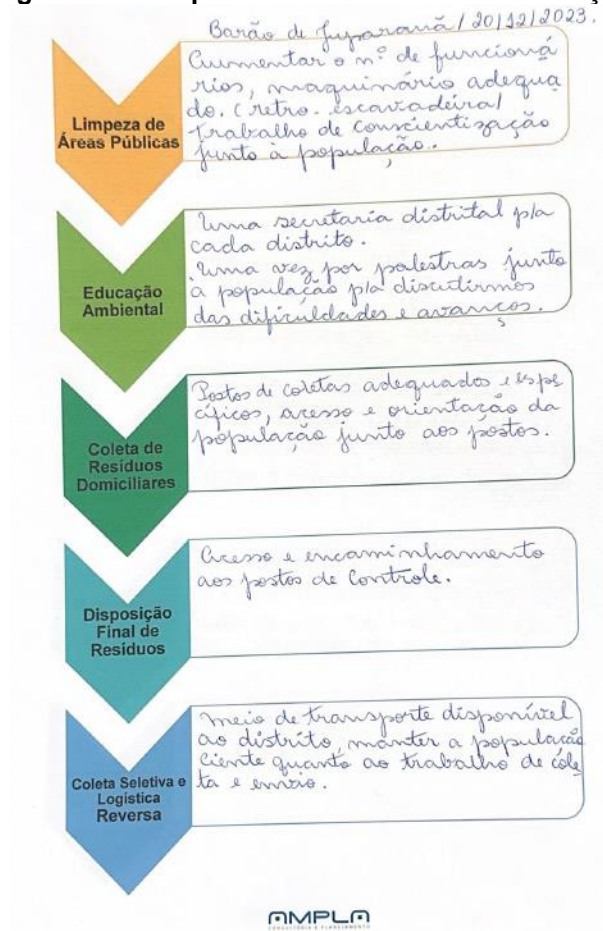 Barão de Juparanã / 20/12/2023.
Limpeza de
Áreas Públicas
Aumentar o n.º de funcioná
rios, maquinário adequa
do. (retro. escavadeira/
trabalho de conscientização
junto à população.
Educação
Ambiental
Uma secretaria distrital p/a
cada distrito.
Uma vez por palestras junto
à população p/a discutirmos
das dificuldades e avanços.
Coleta de
Resíduos
Domiciliares
Postos de coletas adequados e espe
cíficos, acesso e orientação da
população junto aos postos.
Disposição
Final de
Resíduos
Acesso e encaminhamento
aos postos de controle.
Coleta Seletiva e
Logística
Reversa
meio de transporte disponível
ao distrito, manter a população
ciente quanto ao trabalho de cole
ta e envio.
AMPLA
CONSULTORIA E PLANEJAMENTO